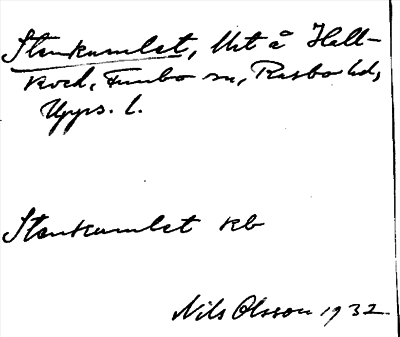 Stenkumlet, Urt å Hall-
kved, Funbo sn, Rasbo hd,
Upps. l.
Stenkumlet kb
Nils Olsson 1932.